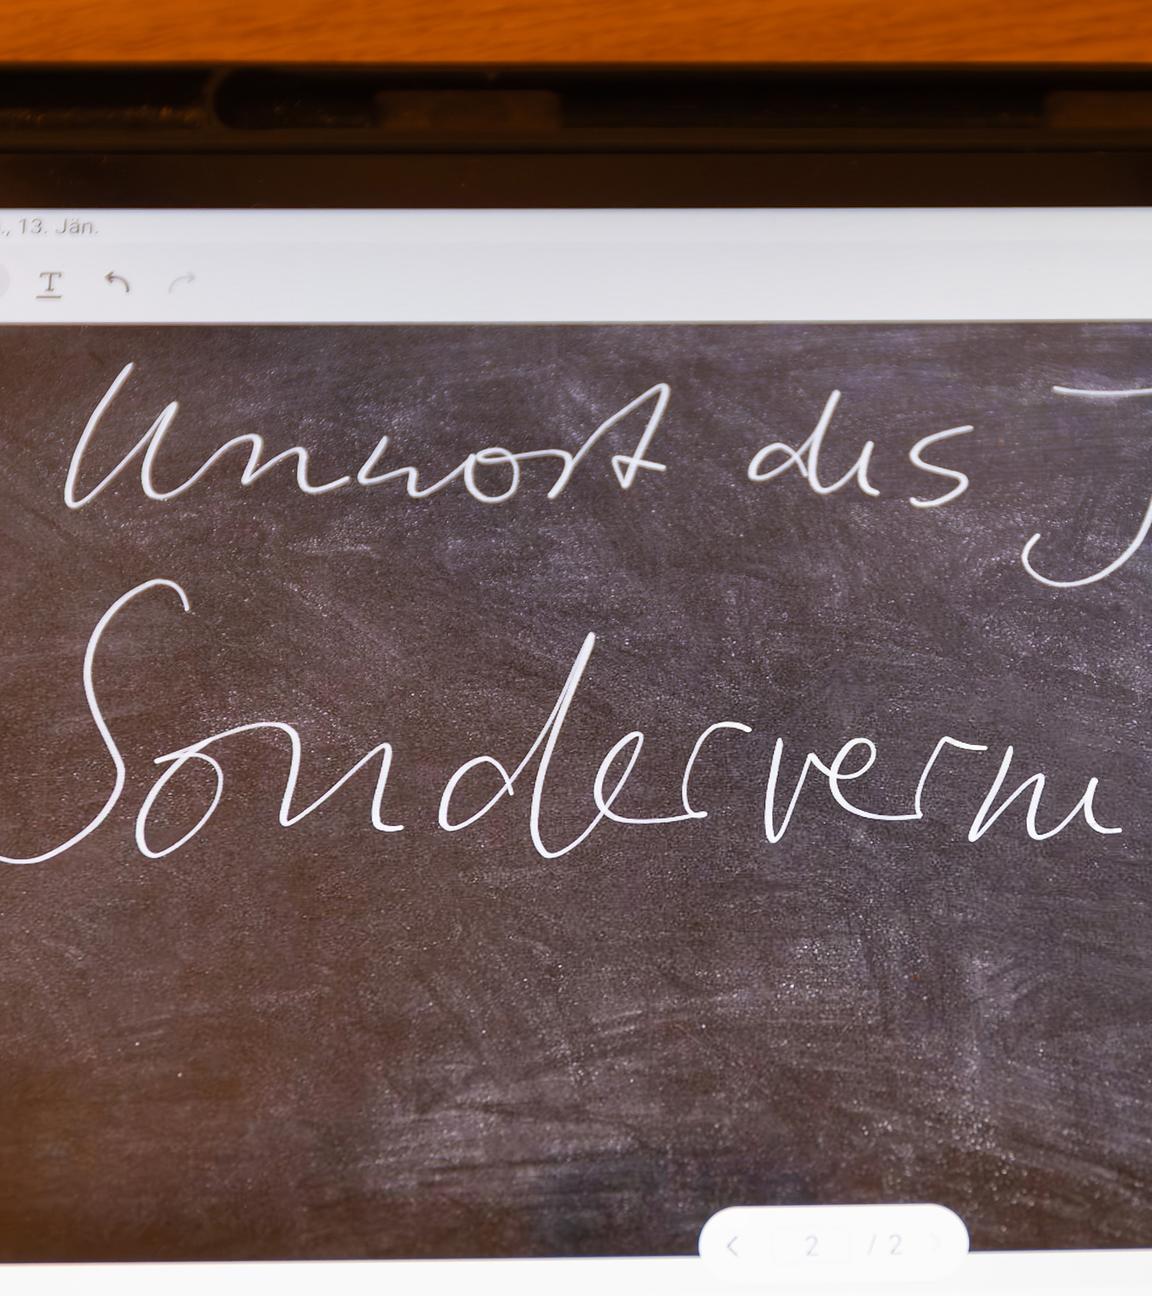 ., 13. Jän.
T
Unwort des J
Sonderverm
2 / 2